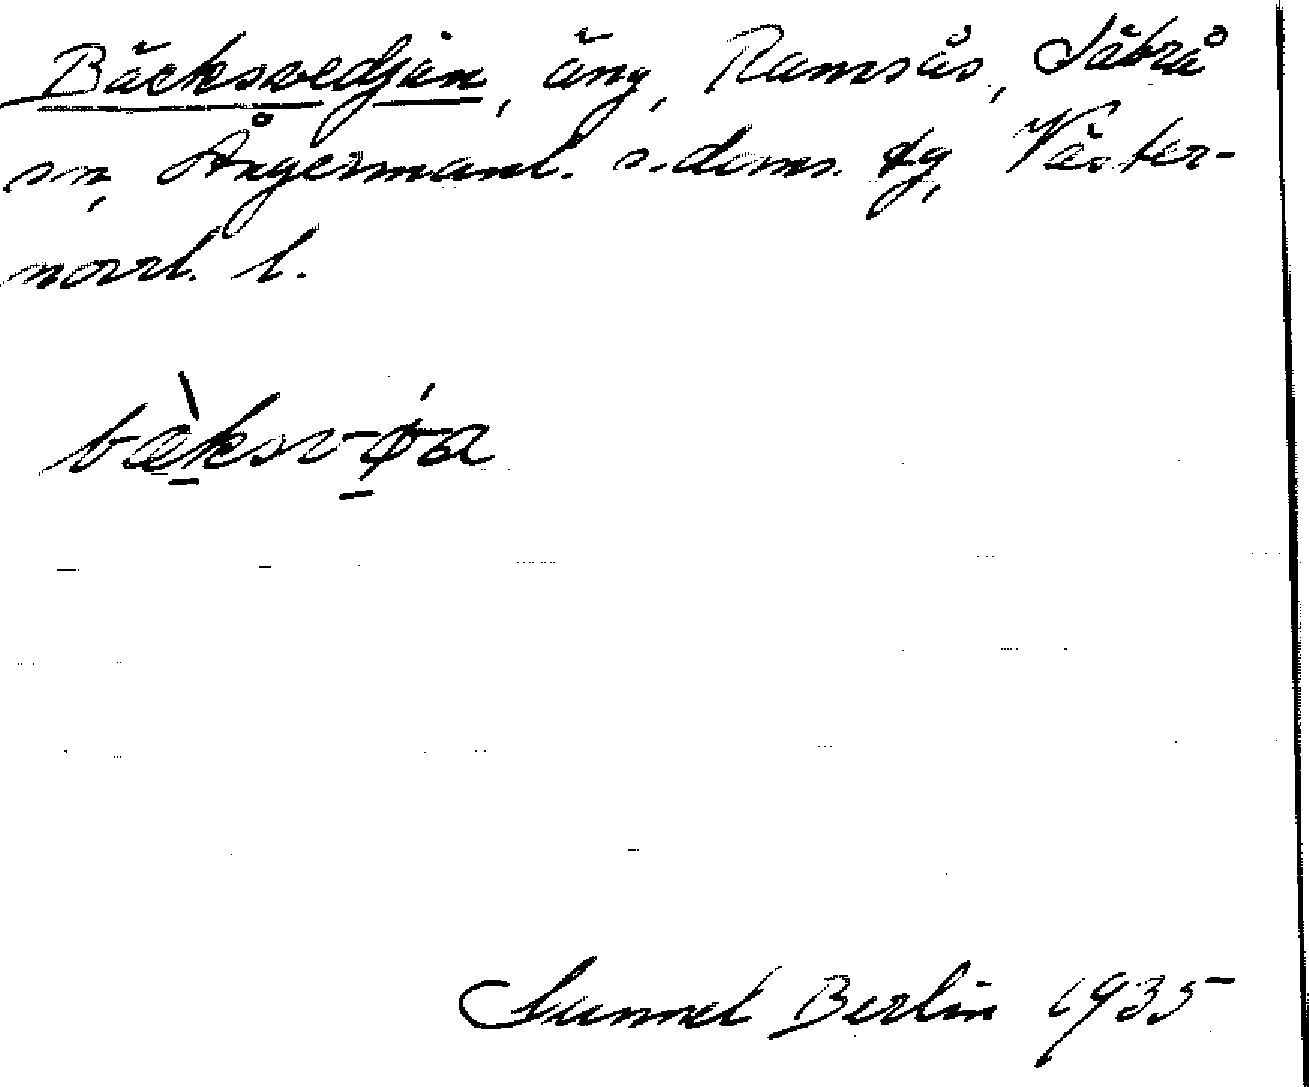 Bäcksvedjan, äng, Ramsås, Säbrå
sn, Ångermanl. s. doms. tg, Väster-
norrl. l.
bæ̀ksv-ǿa
Gunnel Berlin 1935